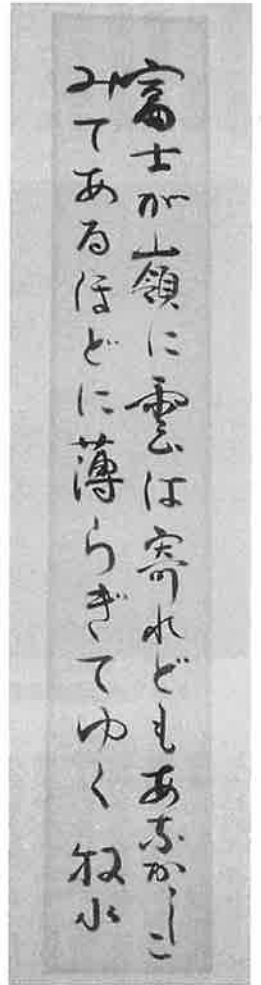 富士が嶺に雲は寄れどもあなかしこ
みてあるほどに薄らぎてゆく 牧水